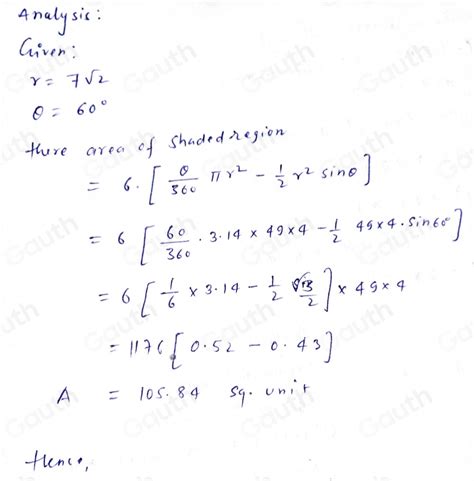 Analysis:
Given:
r = 7√2
θ = 60°
there area of shaded region
= 6 · [ θ/360 πr² - 1/2 r² sinθ ]
= 6 [ 60/360 · 3.14 × 49×4 - 1/2 49×4 · sin60° ]
= 6 [ 1/6 × 3.14 - 1/2 √3/2 ] × 49×4
= 1176 [ 0.52 - 0.43 ]
A = 105.84 sq. unit
Hence,